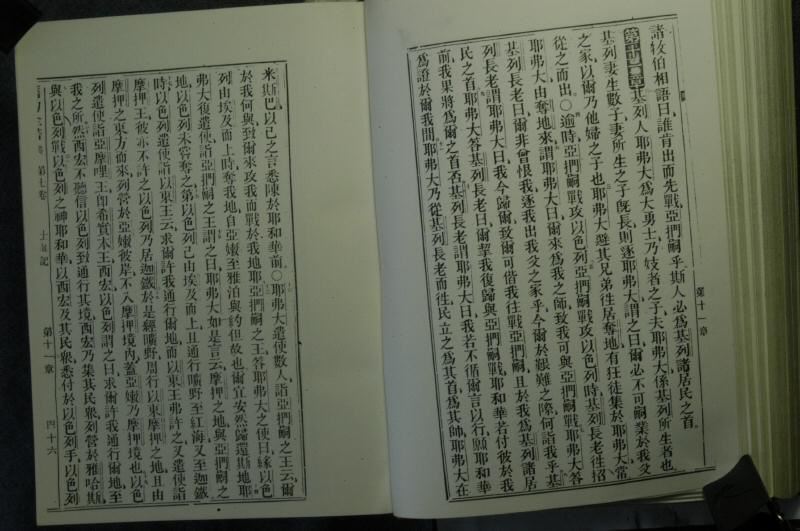 諸牧伯相語曰誰肯出而先戰亞捫嗣乎斯人必爲基列諸居民之首
第十一章
基列人耶弗大爲大勇士乃妓者之子夫耶弗大係基列所生者也
基列妻生數子妻所生之子旣長則逐耶弗大謂之曰爾必不可嗣業於我父
之家以爾乃他婦之子也耶弗大避其兄弟徃居奪地有狂徒集於耶弗大常
從之而出〇逾時亞捫嗣戰攻以色列亞捫嗣戰攻以色列時基列長老徃招
耶弗大由奪地來謂耶弗大曰爾來爲我之師致我可與亞捫嗣戰耶弗大答
基列長老曰爾非曾恨我逐我出我父之家乎今爾於艱難之際何詣我乎基
列長老謂耶弗大曰我今歸爾致爾可偕我徃戰亞捫嗣且於我爲基列諸居
民之首耶弗大答基列長老曰爾挈我復歸與亞捫嗣戰耶和華若付彼於我
前我果將爲爾之首否基列長老謂耶弗大曰我若不循爾言以行願耶和華
爲證於爾我間耶弗大乃從基列長老而徃民立之爲其首爲其帥耶弗大在
第十一章
米斯巴以己之言悉陳於耶和華前〇耶弗大遣使數人詣亞捫嗣之王云爾
於我何與致爾來攻我而戰於我地耶亞捫嗣之王答耶弗大之使曰緣以色
列由埃及而上時奪我地自亞嫩至雅泊與約但故也爾宜安然歸還斯地耶
弗大復遣使詣亞捫嗣之王謂之曰耶弗大如是言云摩押之地與亞捫嗣之
地以色列未嘗奪之第以色列己由埃及而上且通行曠野至紅海又至迦鐵
時以色列遣使詣以東王云求爾許我通行爾地而以東王弗許之又遣使詣
摩押王彼亦不許之以色列乃居迦鐵於是經曠野周行以東摩押之地且由
摩押之東方而來列營於亞嫩彼岸不入摩押境內蓋亞嫩乃摩押境也以色
列遣使詣亞摩哩王卽希實本王西宏以色列謂之曰求爾許我通行爾地至
我之所然西宏不聽信以色列致通行其境西宏乃集其民衆列營於雅哈斯
與以色列戰以色列之神耶和華以西宏及其民衆悉付於以色列手以色列
第七卷 士師記 第十一章 四十六